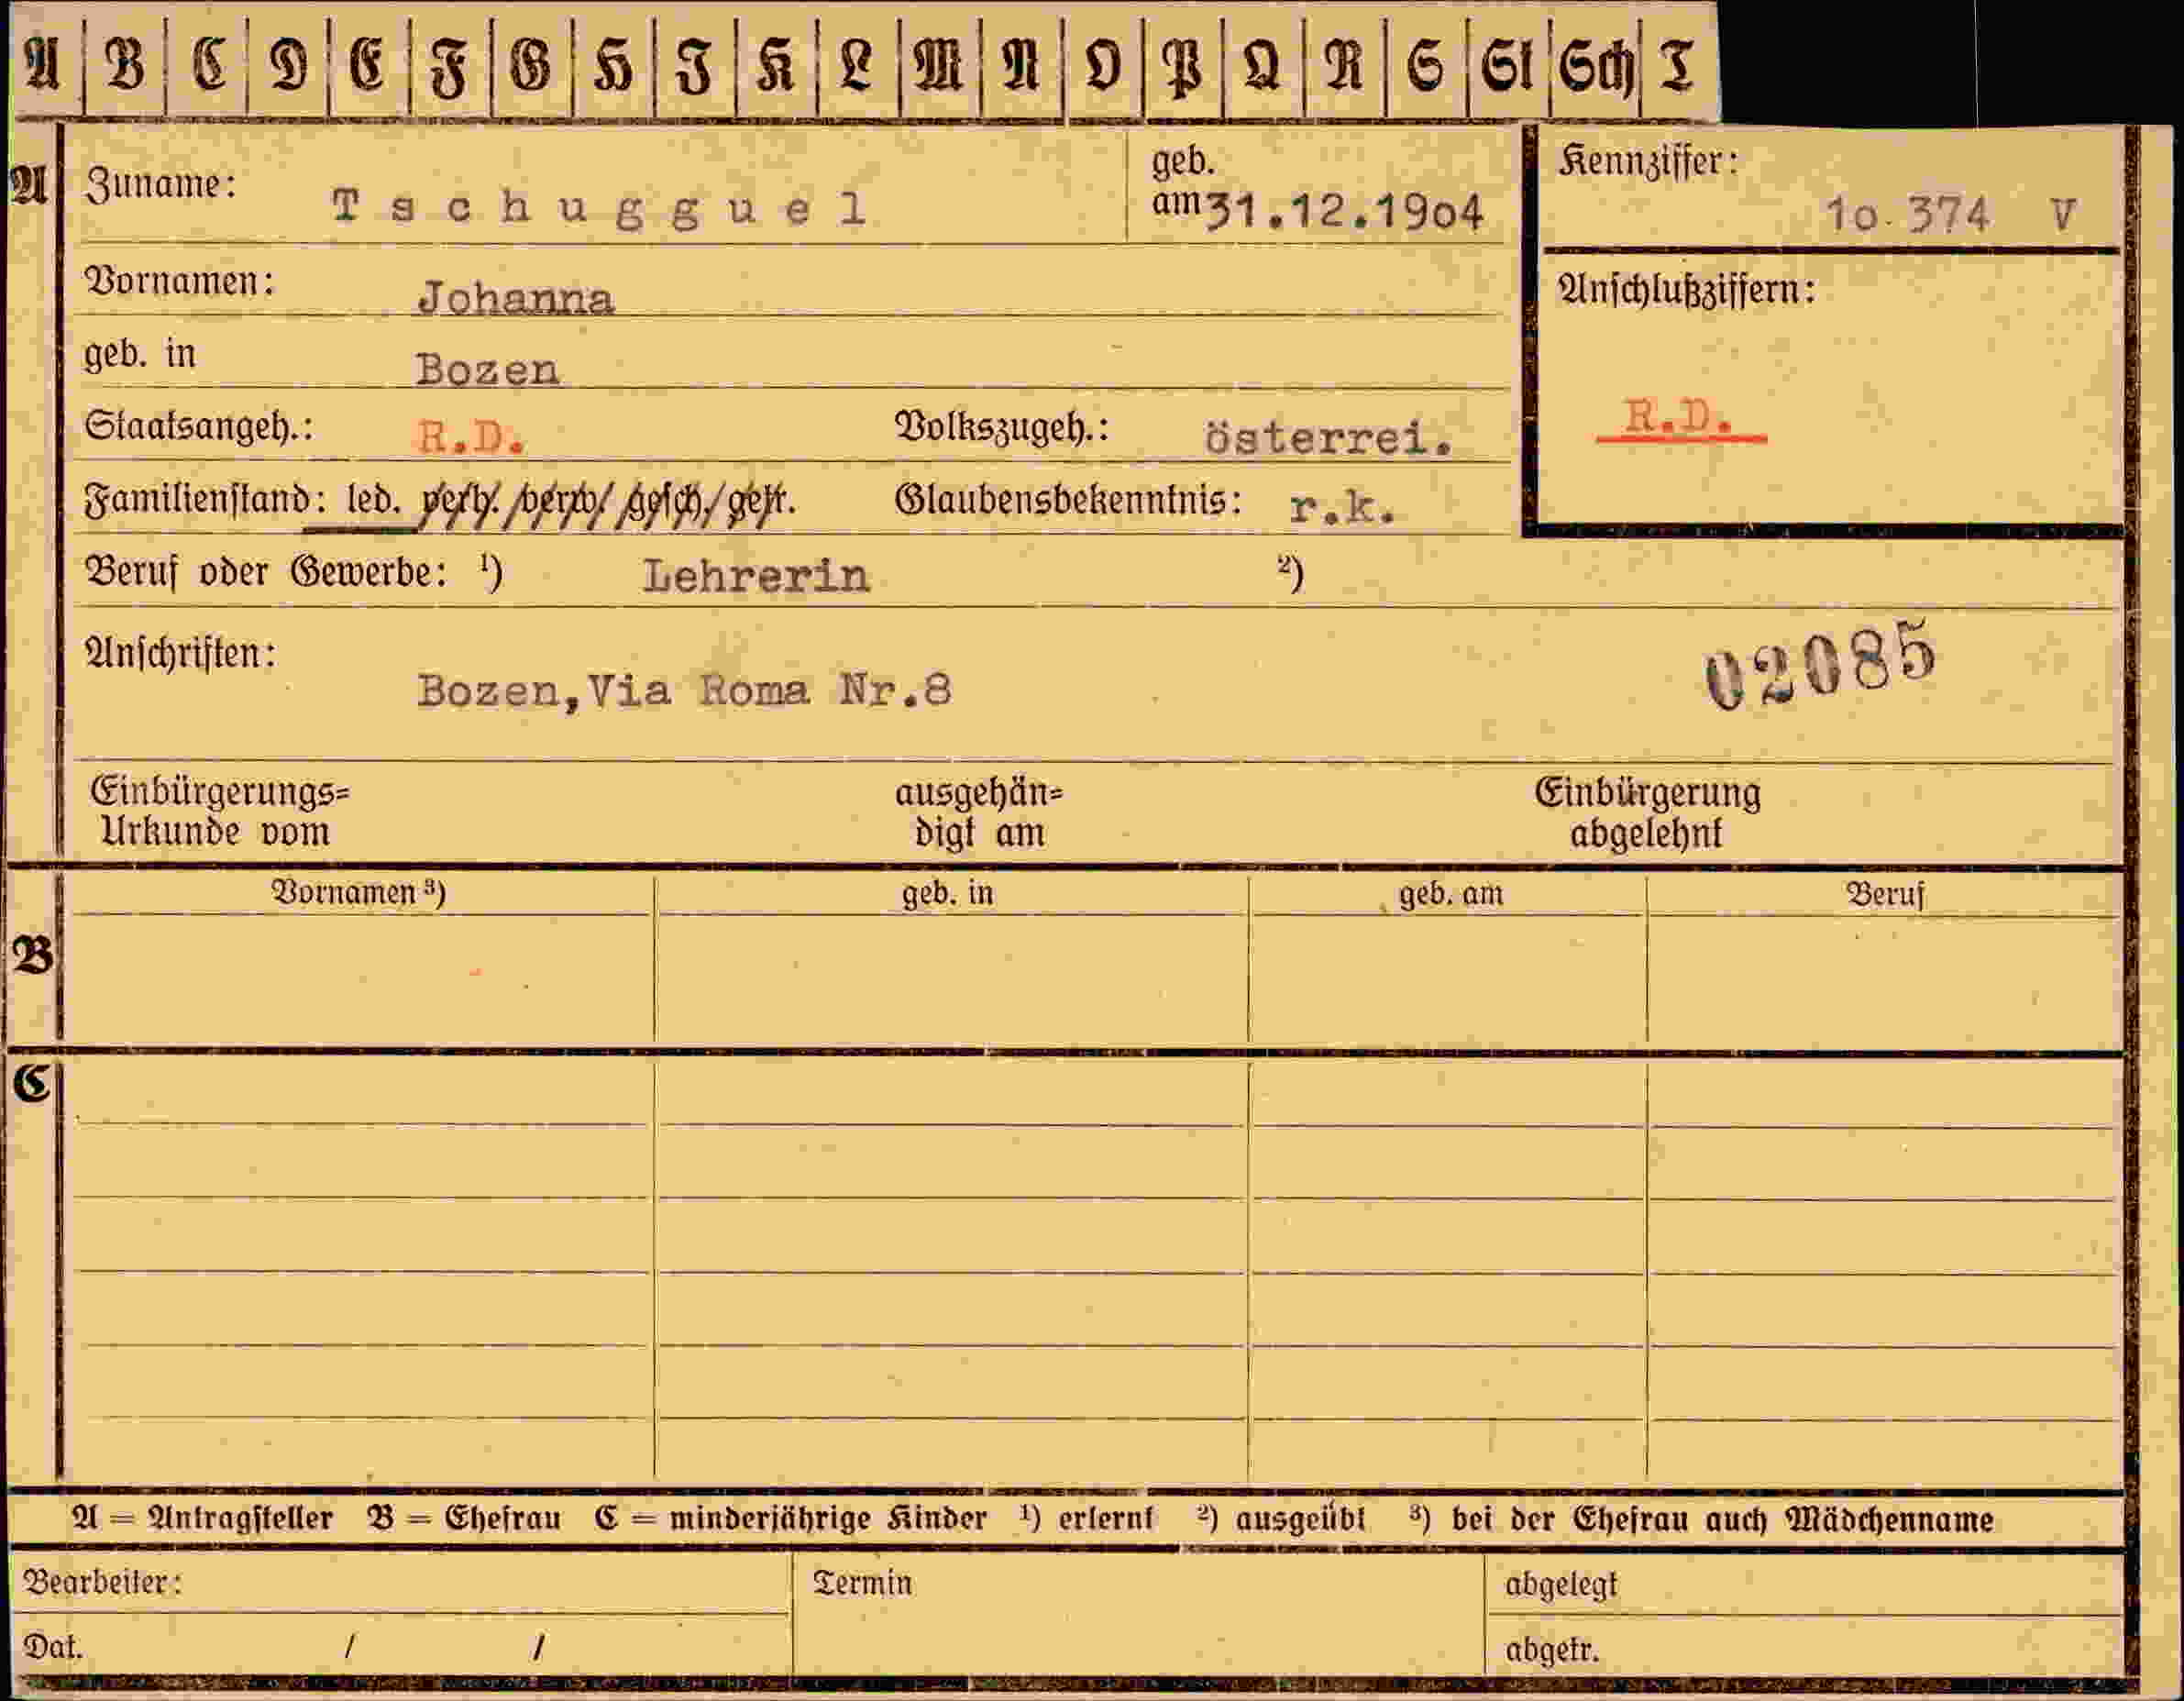 A B C D E F G H I K L M N O P Q R S St Sch T
A Zuname: Tschugguel geb. am 31.12.1904 Kennziffer: 10.374 V
Vornamen: Johanna Anschlußziffern:
geb. in Bozen R.D.
Staatsangeh.: R.D. Volkszugeh.: österrei.
Familienstand: led. verh./verw./gesch./getr. Glaubensbekenntnis: r.k.
Beruf oder Gewerbe: ¹) Lehrerin ²)
Anschriften: 02085
Bozen,Via Roma Nr.8
Einbürgerungs= ausgehän= Einbürgerung
Urkunde vom digt am abgelehnt
Vornamen ³) geb. in geb. am Beruf
B
C
A = Antragsteller B = Ehefrau C = minderjährige Kinder ¹) erlernt ²) ausgeübt ³) bei der Ehefrau auch Mädchenname
Bearbeiter: Termin abgelegt
Dat. / / abgetr.